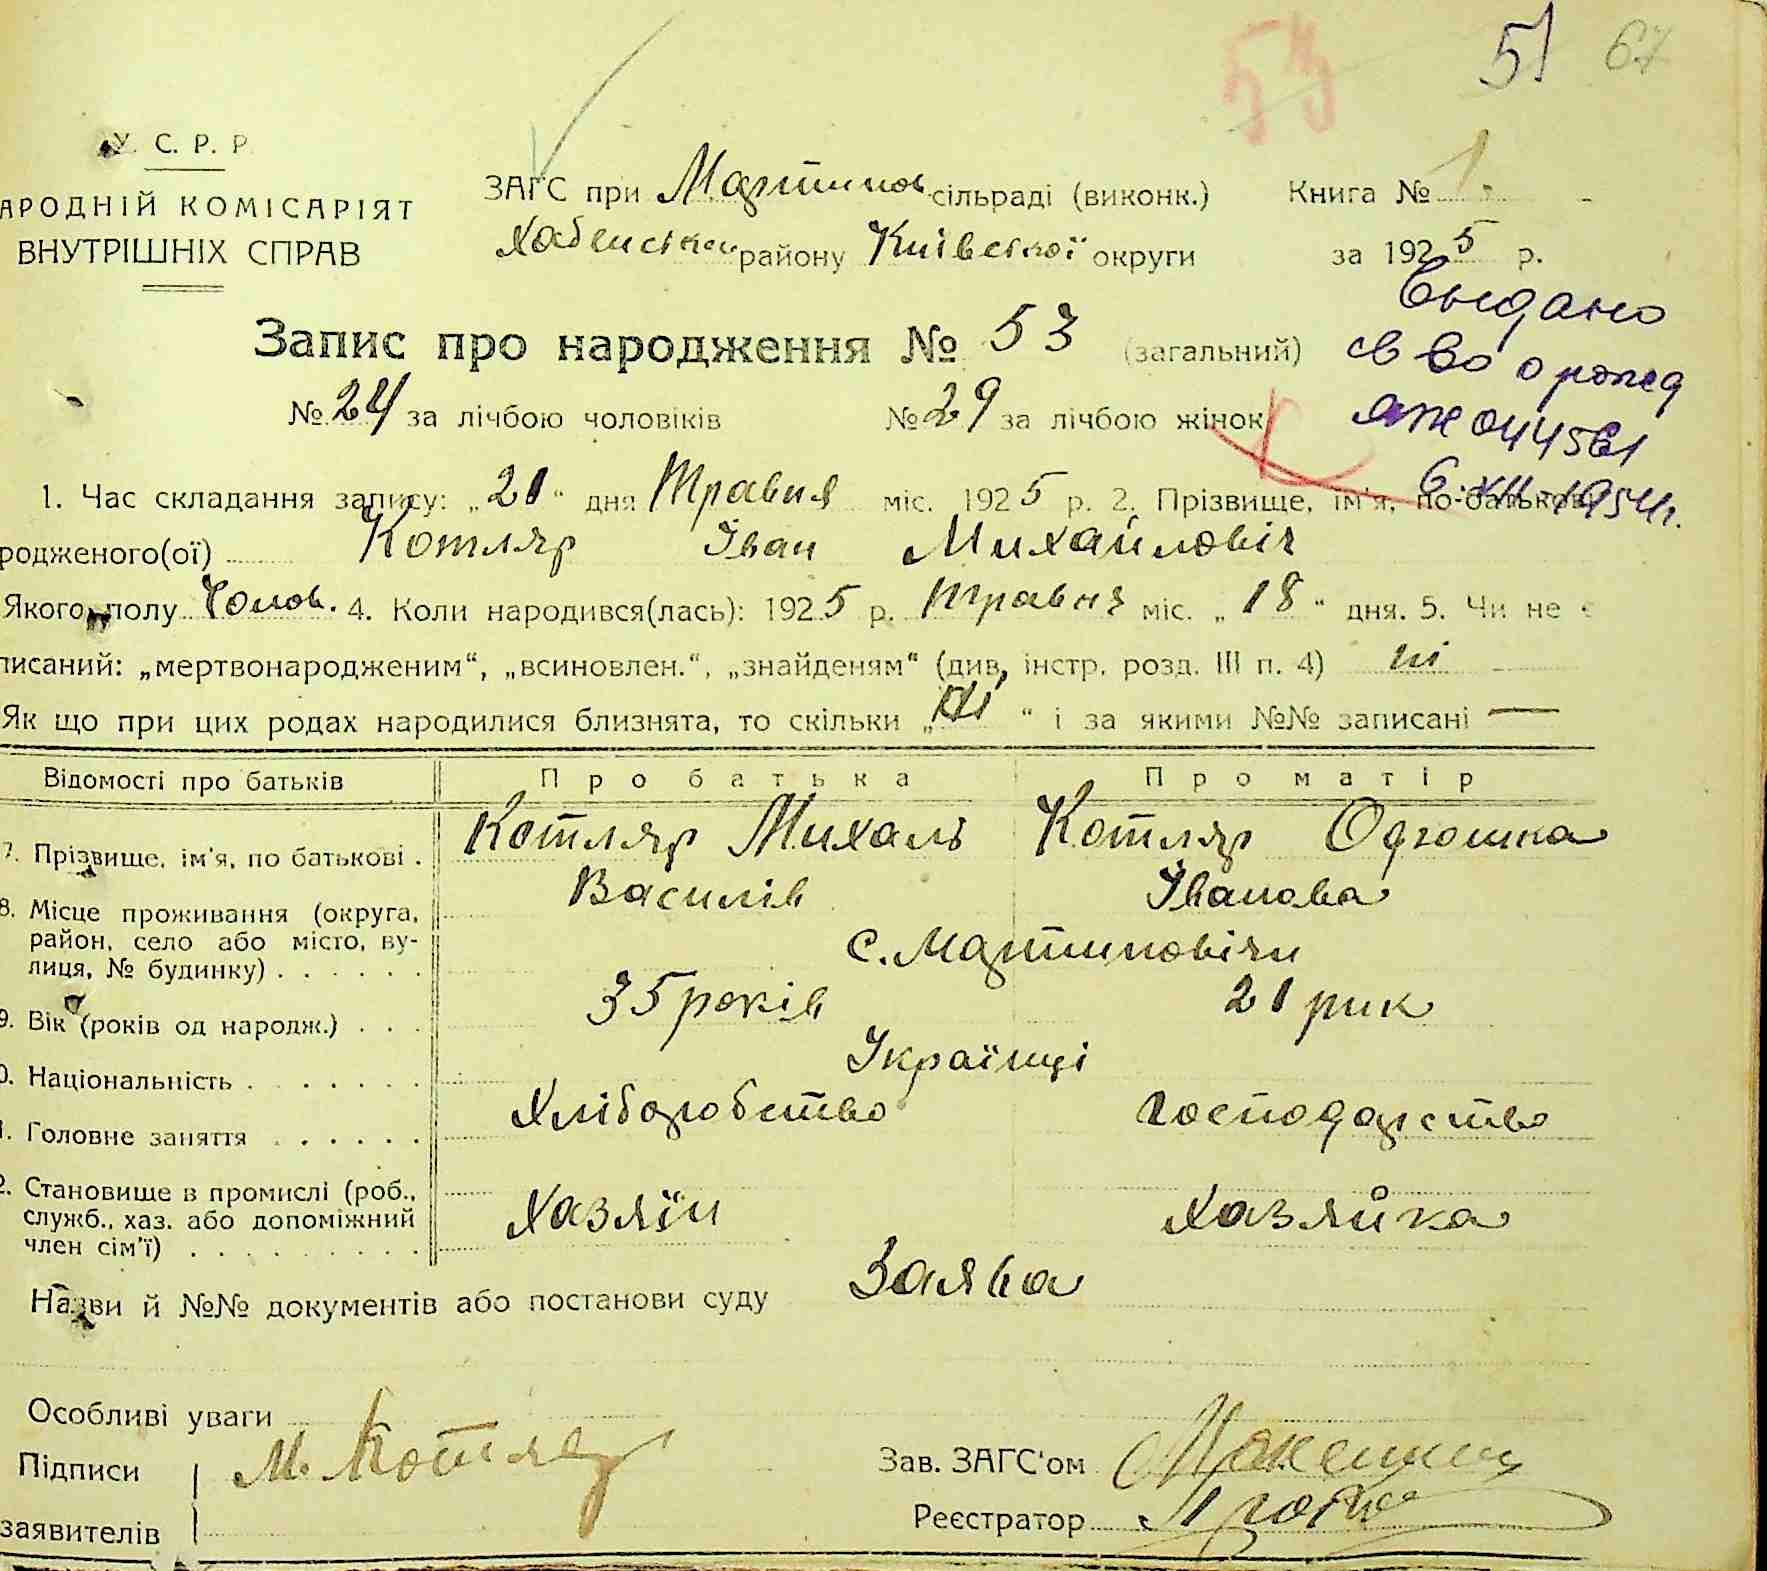 53 51 67
У. С. Р. Р.
АРОДНІЙ КОМІСАРІЯТ
ВНУТРІШНІХ СПРАВ
ЗАГС при Мартинов. сільраді (виконк.) Книга № 1.
Хабенськ району Київської округи за 1925 р.
Запис про народження № 53 (загальний)
№ 24 за лічбою чоловіків № 29 за лічбою жінок
Выдано
св во о рожд
044561
6.XII-1954г.
1. Час складання запису: „21“ дня Травня міс. 1925 р. 2. Прізвище, ім'я, по-батькові
родженого(ої) Котляр Іван Михайловіч
Якого полу Чолов. 4. Коли народився(лась): 1925 р. Травня міс. „18“ дня. 5. Чи не є
писаний: „мертвонародженим“, „всиновлен.“, „знайденям“ (див. інстр. розд. III п. 4) ні
Як що при цих родах народилися близнята, то скільки „ні“ і за якими №№ записані —
Відомості про батьків Про батька Про матір
7. Прізвище, ім'я, по батькові . Котляр Михаль Котляр Одгошка
Василів Іванова
8. Місце проживання (округа,
район, село або місто, ву-
лиця, № будинку) . . . . . . с. Мартиновічи
9. Вік (років од народж.) . . . 35 років 21 рик
0. Національність . . . . . . . Українці
1. Головне заняття . . . . . . Хліборобство Господарство
2. Становище в промислі (роб.,
служб., хаз. або допоміжний
член сім'ї) . . . . . . . . . Хазяїн Хазяйка
Назви й №№ документів або постанови суду Заява
Особливі уваги
Підписи М. Котляр Зав. ЗАГС'ом
заявителів Реєстратор